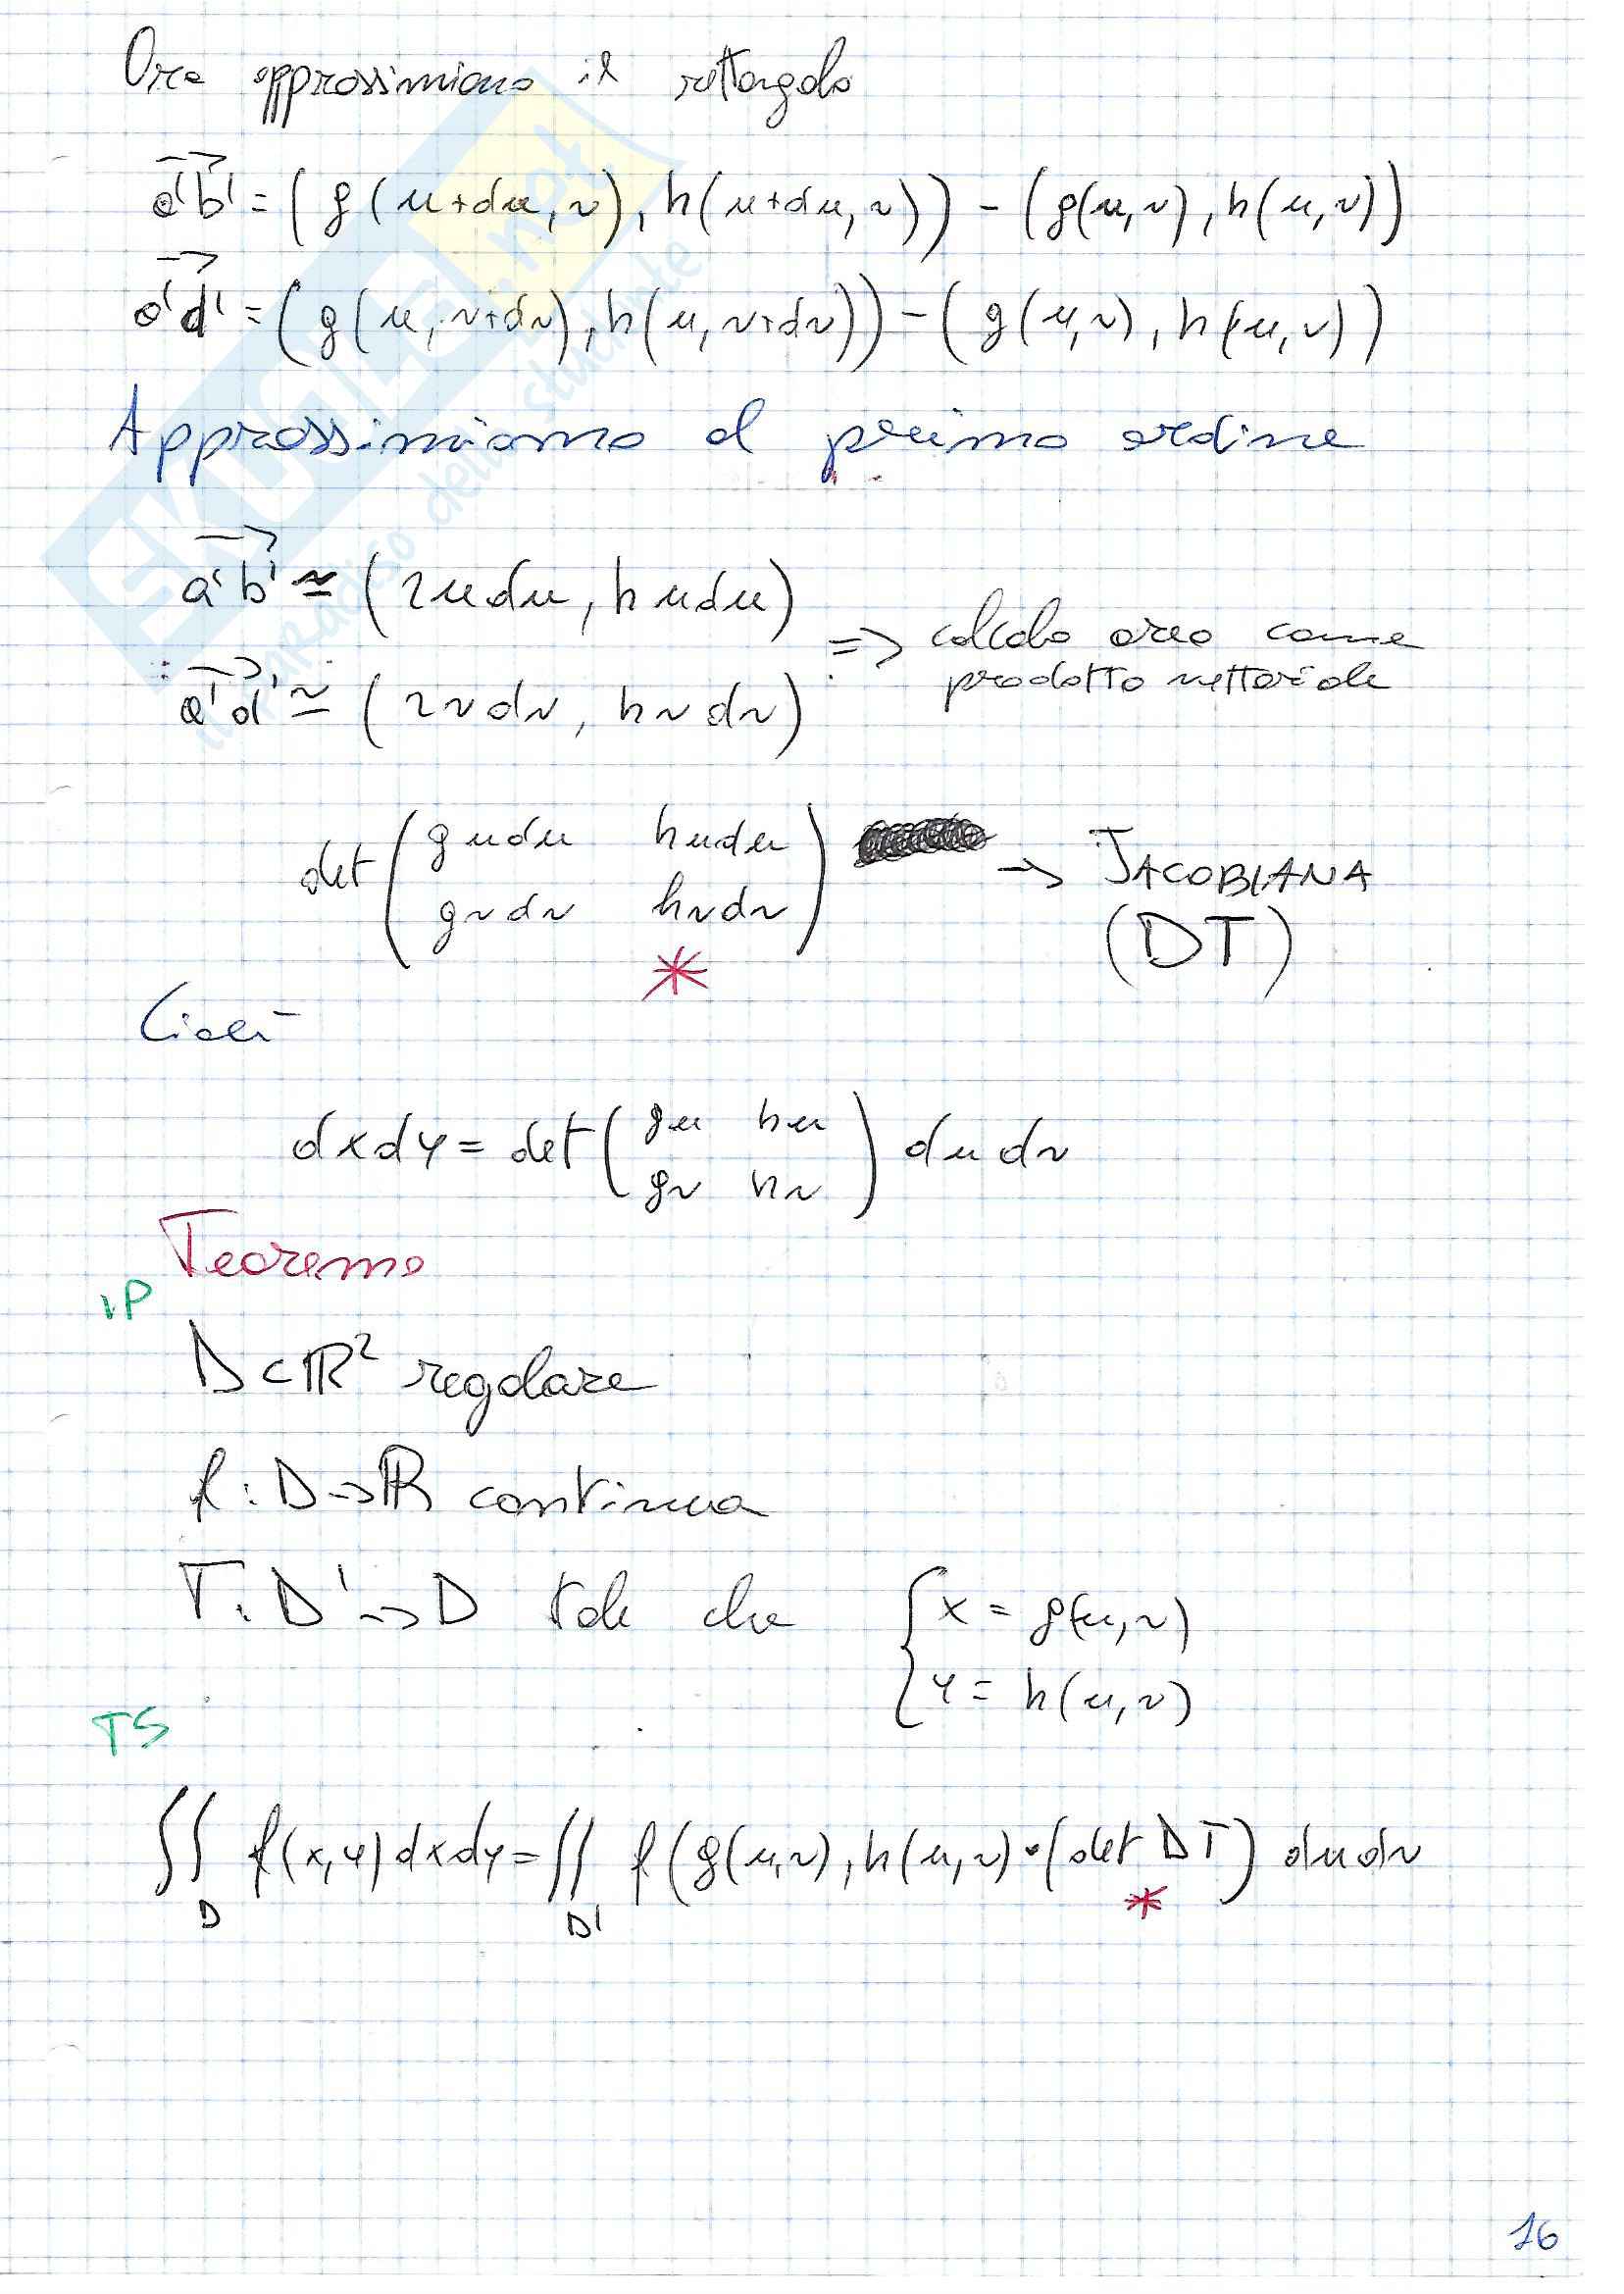 Ora approssimiamo il rettangolo
a'b' = (g(u+du,v), h(u+du,v)) - (g(u,v), h(u,v))
a'd' = (g(u,v+dv), h(u,v+dv)) - (g(u,v), h(u,v))
Approssimiamo al primo ordine
a'b' ≃ (gu du, hu du)
=> calcolo area come
prodotto vettoriale
a'd' ≃ (gv dv, hv dv)
det ( gu du hu du
gv dv hv dv ) -> JACOBIANA
* (DT)
Cioè
dxdy = det ( gu hu
gv hv ) du dv
Teorema
IP
D ⊂ ℝ² regolare
f : D -> ℝ continua
T : D' -> D tale che { x = g(u,v)
y = h(u,v)
TS
∬ f(x,y) dxdy = ∬ f(g(u,v), h(u,v) • (det DT) du dv
D D' *
16
SKUOLA.not
il paradiso dello studente